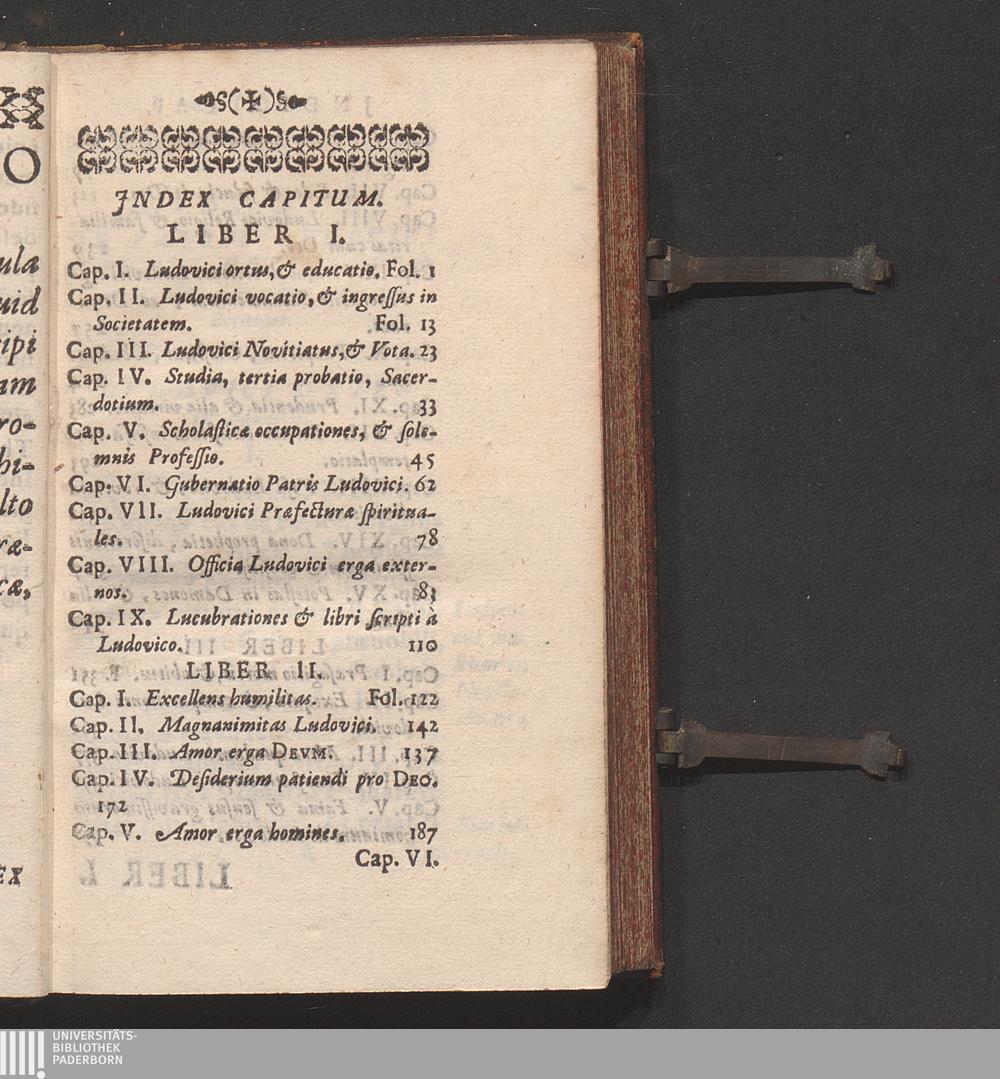 O
ula
uid
ipi
am
ro-
hi-
lto
ræ-
cæ,
EX
INDEX CAPITUM.
LIBER I.
Cap. I. Ludovici ortus, & educatio. Fol. 1
Cap. II. Ludovici vocatio, & ingreſſus in
Societatem. Fol. 13
Cap. III. Ludovici Novitiatus, & Vota. 23
Cap. IV. Studia, tertia probatio, Sacer-
dotium. 33
Cap. V. Scholaſticæ occupationes, & ſole-
mnis Profeſſio. 45
Cap. VI. Gubernatio Patris Ludovici. 62
Cap. VII. Ludovici Præfecturæ ſpiritua-
les. 78
Cap. VIII. Officia Ludovici erga exter-
nos. 83
Cap. IX. Lucubrationes & libri ſcripti à
Ludovico. 110
LIBER II.
Cap. I. Excellens humilitas. Fol. 122
Cap. II. Magnanimitas Ludovici. 142
Cap. III. Amor erga DEVM. 137
Cap. IV. Deſiderium patiendi pro DEO.
172
Cap. V. Amor erga homines. 187
Cap. VI.
UNIVERSITÄTS-
BIBLIOTHEK
PADERBORN